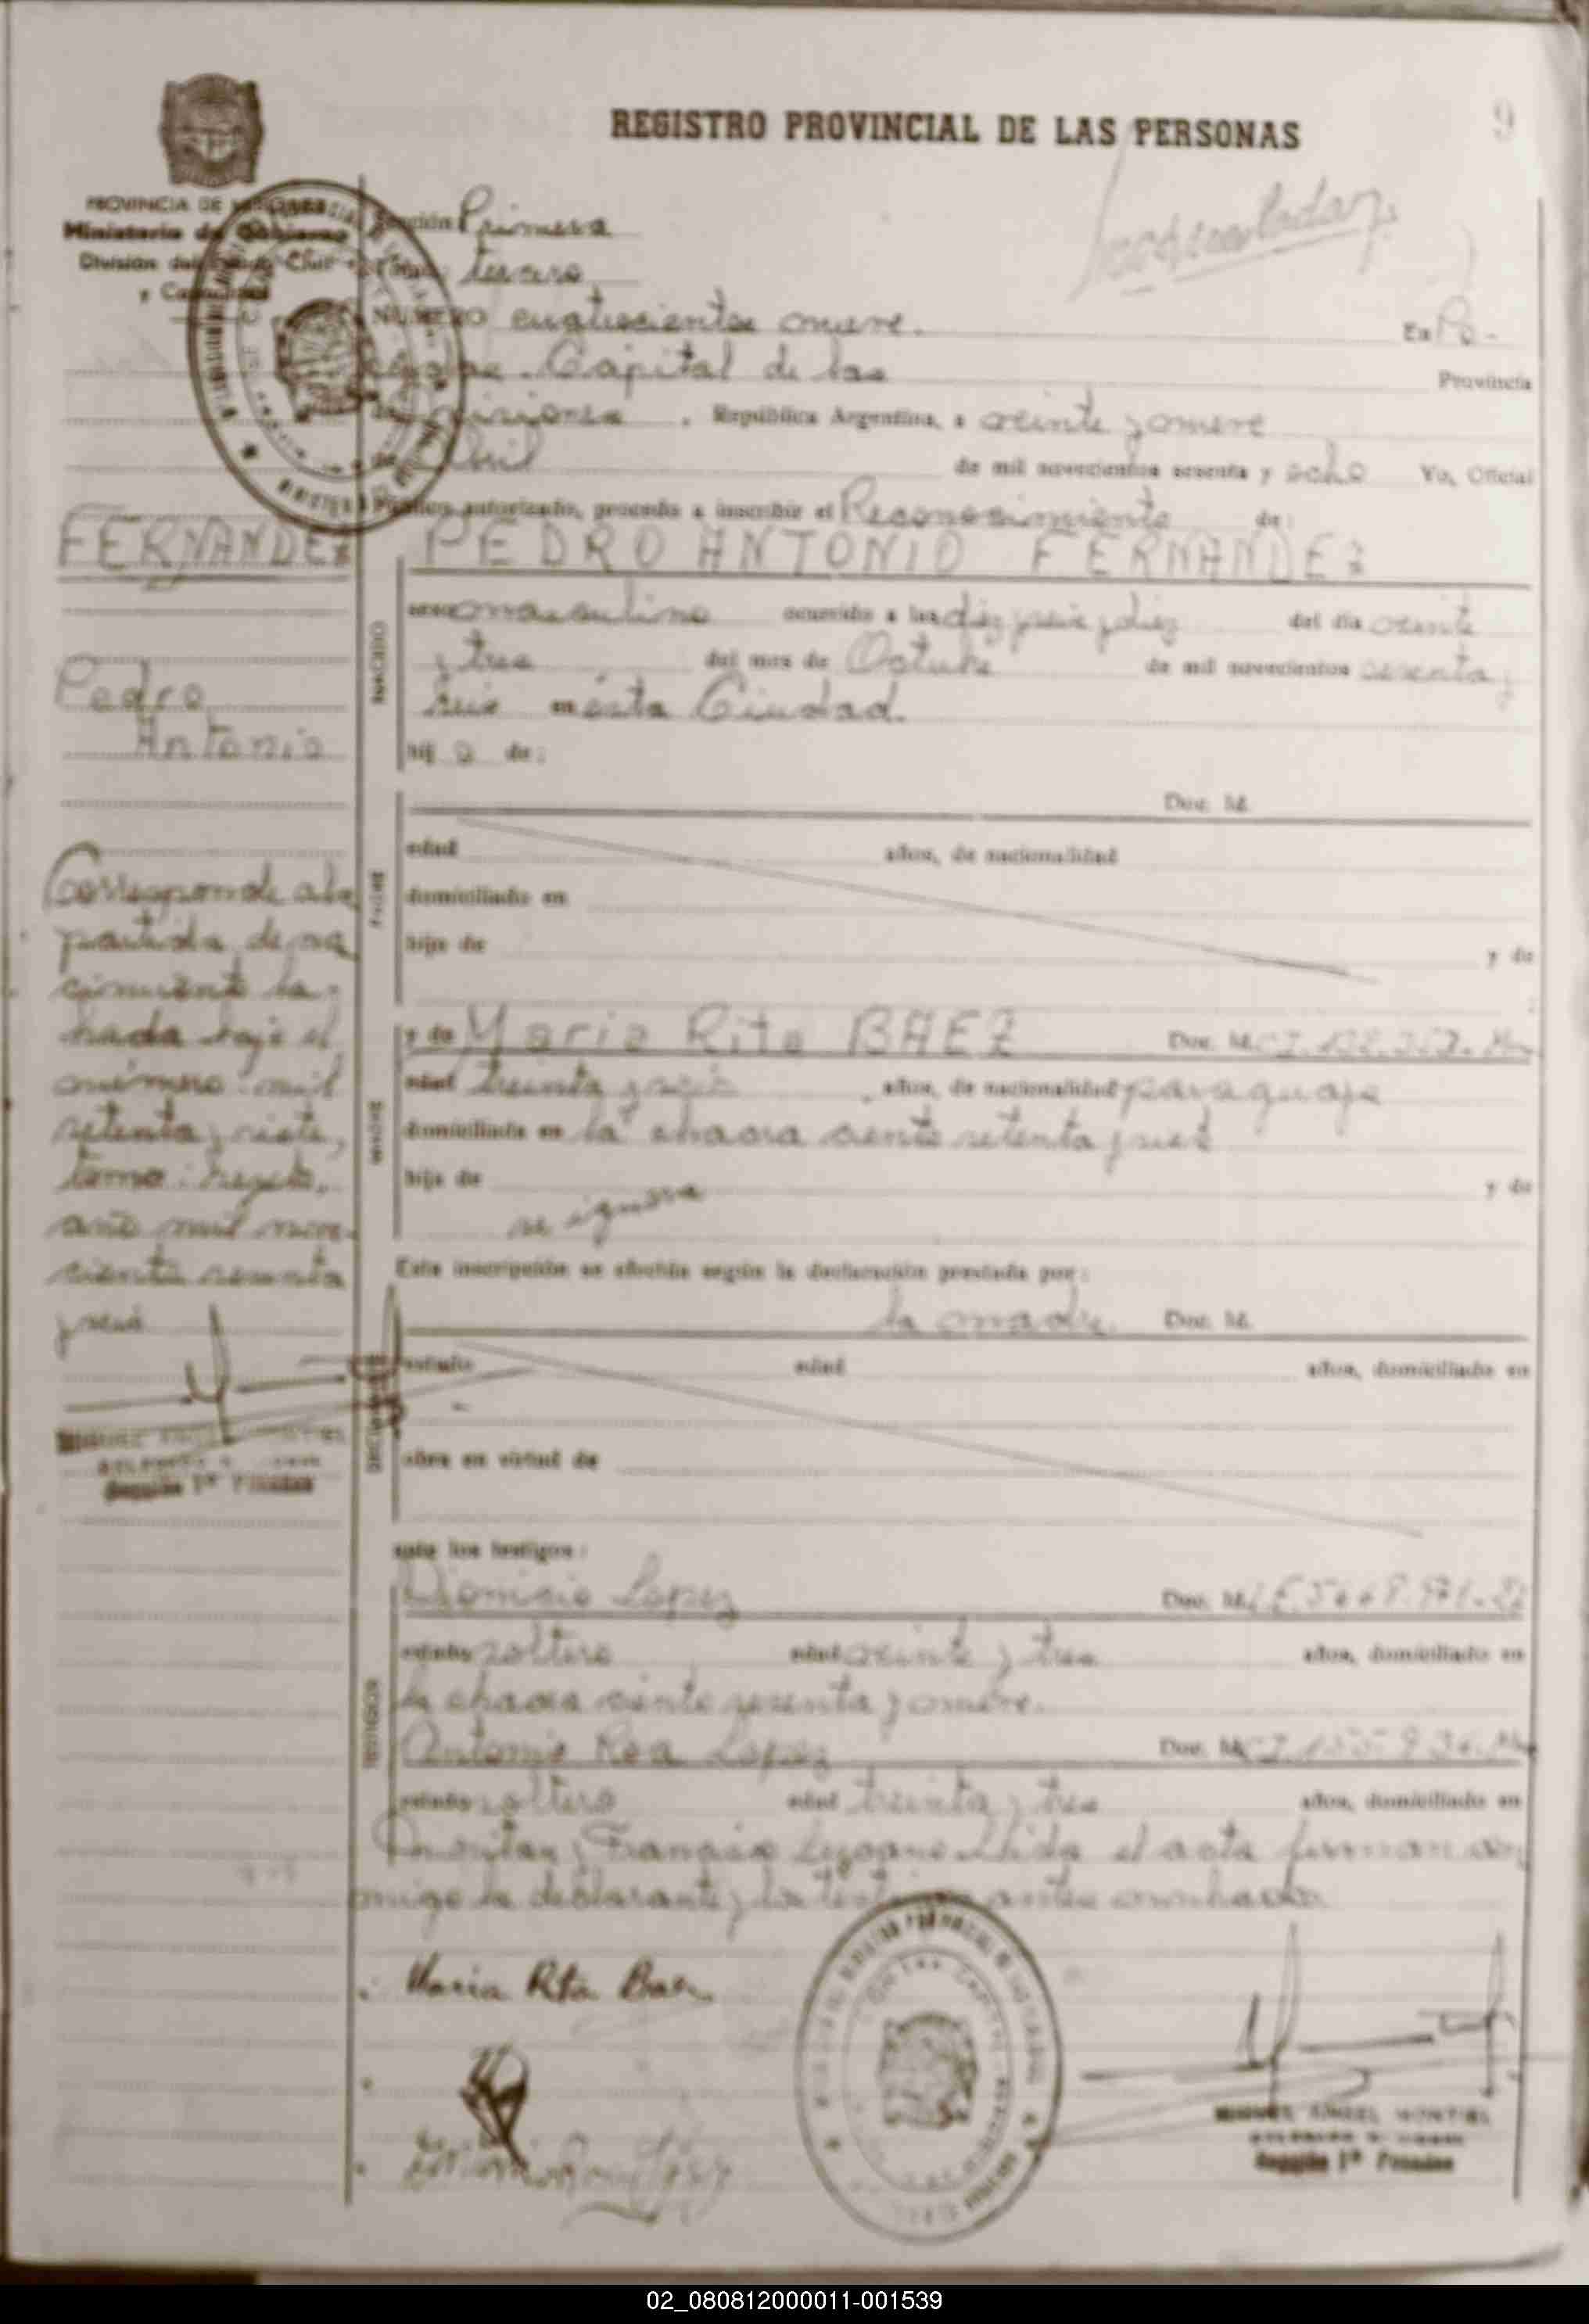 REGISTRO PROVINCIAL DE LAS PERSONAS
9
PROVINCIA DE MISIONES
Ministerio de Gobierno
División del Estado Civil
y Capacidad
Sección Primera
Tomo tercero
NUMERO cuatrocientos nueve. En Po-
sadas. Capital de la Provincia
de Misiones, República Argentina, a veinte y nueve
de Abril de mil novecientos sesenta y ocho Yo, Oficial
Público autorizado, procedo a inscribir el Reconocimiento de:
FERNANDEZ
PEDRO ANTONIO FERNANDEZ
sexo masculino ocurrido a las diez y seis y diez del día veinte
y tres del mes de Octubre de mil novecientos sesenta y
seis en esta Ciudad.
hij o de:
Pedro
Antonio
NACIDO
Doc. Id.
edad años, de nacionalidad
domiciliado en
hijo de y de
PADRE
y de Maria Rita BAEZ Doc. Id. C.I.
edad treinta y seis años, de nacionalidad paraguaya
domiciliada en la chacra ciento setenta y seis
hija de y de
se ignora
MADRE
Corresponde a la
partida de na
cimiento la-
brada bajo el
número mil
setenta y siete,
tomo
año mil nove-
cientos sesenta
y seis
Sección 1ª Posadas
Esta inscripción se efectúa según la declaración prestada por:
la madre. Doc. Id.
estado edad años, domiciliado en
obra en virtud de
ante los testigos:
Dionicio Lopez Doc. Id.
estado soltero edad veinte y tres años, domiciliado en
la chacra ciento sesenta y nueve.
Antonio Roa Lopez Doc. Id. C.I.
estado soltero edad treinta y tres años, domiciliado en
TESTIGOS
el acta firman con
migo la declarante y los testigos antes
Maria Rita Baez
MIGUEL ANGEL MONTIEL
Sección 1ª Posadas
02_080812000011-001539